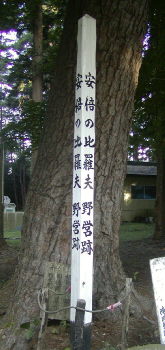 安倍の比羅夫 野営跡
安倍の比羅夫 野営跡